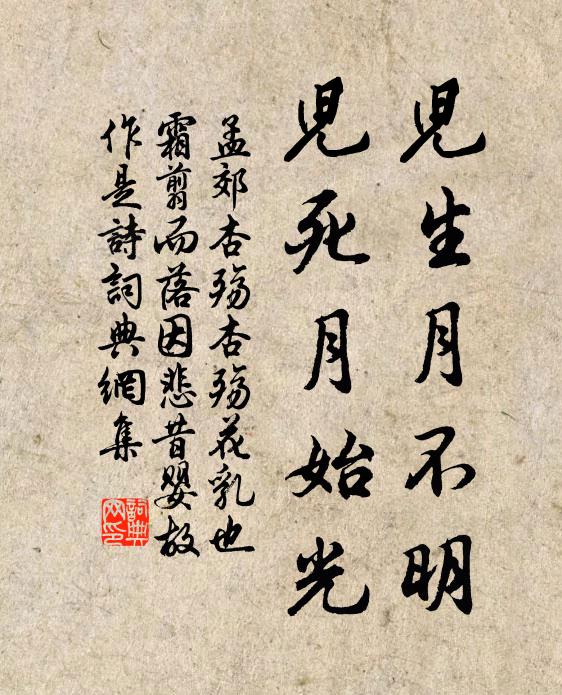 兒生月不明
兒死月始光
孟郊杏殤杏殤花乳也
霜翦而落因悲昔嬰故
作是詩詞典網集
詞典
网印